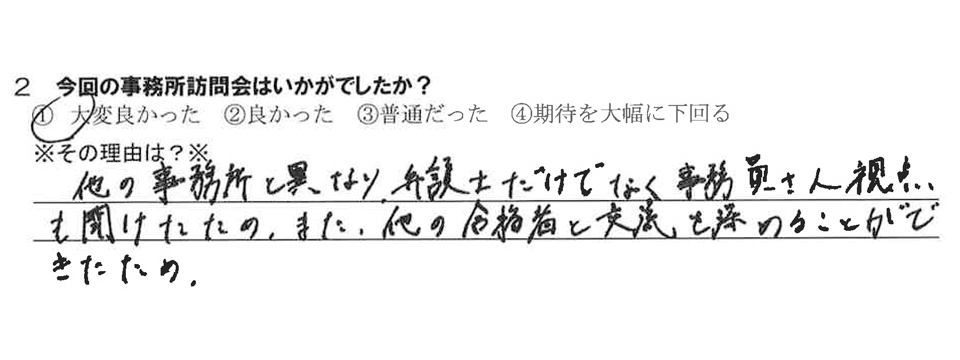 2 今回の事務所訪問会はいかがでしたか？
① 大変良かった ②良かった ③普通だった ④期待を大幅に下回る
※その理由は？※
他の事務所と異なり、弁護士だけでなく事務員さん視点
も聞けたため。また、他の合格者と交流を深めることがで
きたため。